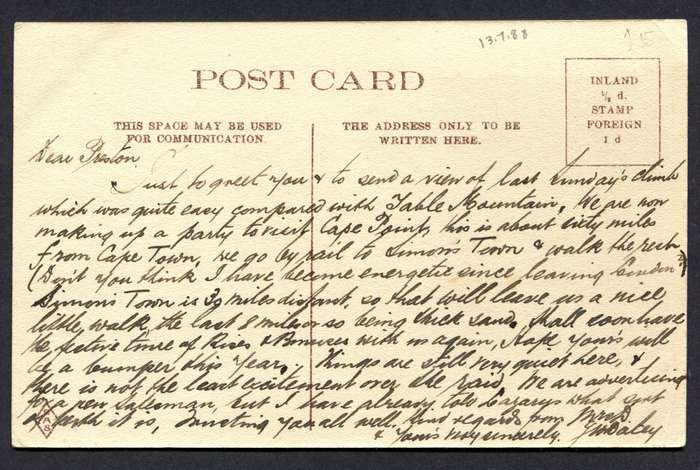 13.7.88
15
POST CARD
INLAND
½ d.
STAMP
FOREIGN
1 d
THIS SPACE MAY BE USED
FOR COMMUNICATION.
THE ADDRESS ONLY TO BE
WRITTEN HERE.
Dear Preston,
Just to greet you & to send a view of last Sunday's climb
which was quite easy compared with Table Mountain. We are now
making up a party to visit Cape Point, this is about sixty miles
from Cape Town, we go by rail to Simon's Town & walk the rest
(Don't you think I have become energetic since leaving London?)
Symon's Town is 39 miles distant, so that will leave us a nice
little, walk, the last 8 miles or so being thick sand. Shall soon have
the festive time of Rises & Bonuses with us again, Hope yours will
be a bumper this year. Things are still very quiet here, &
there is not the least excitement over the raid. We are advertising
for a new salesman, but I have already told what sort
of it is, trusting you all well. Kind regards from
& Yours very sincerely.